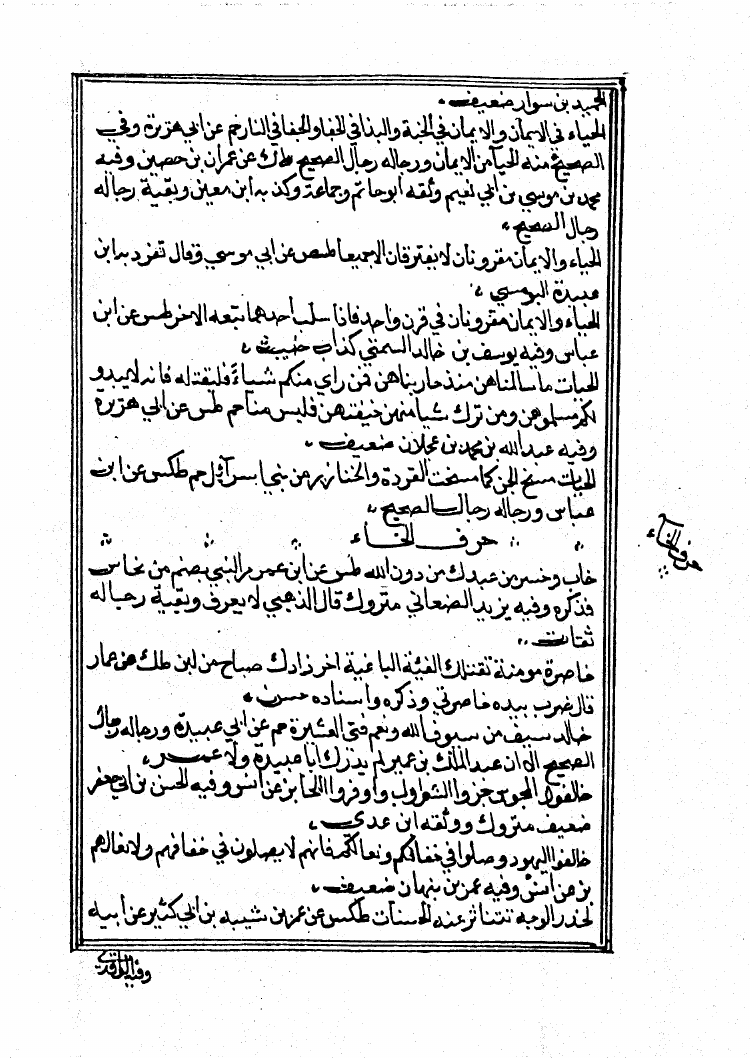 الحميد بن سوار ضعيف.
الحياء في الايمان والايمان في الجنة والبذا في الجفا والجفا في النار حم عن ابي هريرة وفي
الصحيح منه الحيا من الايمان ورجاله رجال الصحيح طك عن عمران بن حصين وفيه
محمد بن موسي بن ابي نعيم وثقه ابو حاتم وجماعة وكذبه ابن معين وبقية رجاله
رجال الصحيح
الحياء والايمان مقرونان لا يفترقان الا جميعا طص عن ابي موسي وقال تفرد به ابن
عبيدة
الحياء والايمان مقرونان في قرن واحد فاذا سلب احدهما تبعه الاخر طس عن ابن
عباس وفيه يوسف بن خالد السمتي كذاب خبيث
الحيات ما سالمناهن منذ حاربناهن فمن راي منكم شياء فليقتله فانه لا يبدو
لكم مسلموهن ومن ترك شيا منهن خيفتهن فليس منا حم طس عن ابي هريرة
وفيه عبد الله بن محمد بن عجلان ضعيف
الحيات مسخ الجن كما مسخت القردة والخنازير من بني اسرآئيل حم طكس عن ابن
عباس ورجاله رجال الصحيح
حرف الخاء
حرف الخاء
خاب وخسر من عبدك من دون الله طس عن ابن عمر مر النبي بصنم من نحاس
فذكره وفيه يزيد الصنعاني متروك قال الذهبي لا يعرف وبقية رجاله
ثقات
خاصرة مومنة تقتلك الفئة الباغية آخر زادك صياح من لبن طك عن عمار
قال ضرب بيده خاصرتي وذكره واسناده حسن
خالد سيف من سيوف الله ونعم فتى العشيرة حم عن ابي عبيدة ورجاله رجال
الصحيح الا ان عبد الملك بن عمير لم يدرك ابا عبيدة ولا عمر
خالفوا المجوس جزوا الشوارب واوفروا اللحا بز عن انس وفيه الحسن بن ابي جعفر
ضعيف متروك ووثقه ابن عدي
خالفوا اليهود وصلوا في خفافكم ونعالكم فانهم لا يصلون في خفافهم ولا نعالهم
بز عن انس وفيه عمر بن نبهان ضعيف
لحذر الوجه تتناثر عنه الحسنات طكس عن عمر بن شيبه بن ابي كثير عن ابيه
وفيه الواقدي